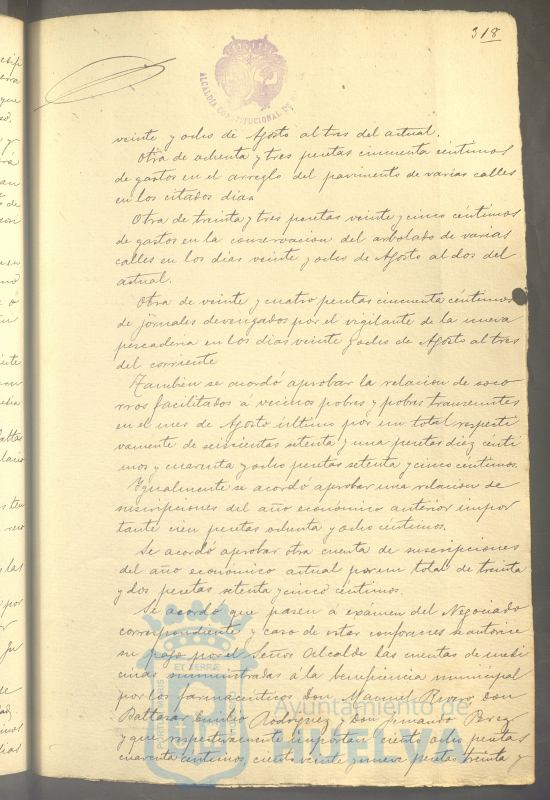 318
ALCALDÍA CONSTITUCIONAL DE
veinte y ocho de Agosto al tres del actual.
Otra de ochenta y tres pesetas cincuenta centimos
de gastos en el arreglo del pavimento de varias calles
en los citados dias
Otra de treinta y tres pesetas veinte y cinco céntimos
de gastos en la conservacion del arbolado de varias
calles en los dias veinte y ocho de Agosto al dos del
actual.
Otra de veinte y cuatro pesetas cincuenta céntimos
de jornales devengados por el vigilante de la nueva
pescaderia en los dias veinte y ocho de Agosto al tres
del corriente
Tambien se acordó aprobar la relacion de soco
rros facilitados á vecinos pobres y pobres transeuntes
en el mes de Agosto último por un total respecti
vamente de seiscientas setenta y una pesetas diez centi
mos y cuarenta y ocho pesetas setenta y cinco centimos.
Igualmente se acordó aprobar una relacion de
suscripciones del año económico anterior impor
tante cien pesetas ochenta y ocho centimos.
Se acordó aprobar otra cuenta de suscripciones
del año económico actual por un total de treinta
y dos pesetas setenta y cinco centimos.
Se acordó que pasen á exámen del Negociado
correspondiente y caso de estar conformes se autorice
su pago por el Señor Alcalde las cuentas de medi
cinas suministradas á la beneficencia municipal
por los farmaceuticos Don Manuel Rivero, Don
Baltazar Emilio Rodriguez y Don Armando Perez
y que respectivamente importan ciento ocho pesetas
cuarenta centimos, ciento veinte y nueve pesetas treinta y
ET TERRAE
Ayuntamiento de
HUELVA